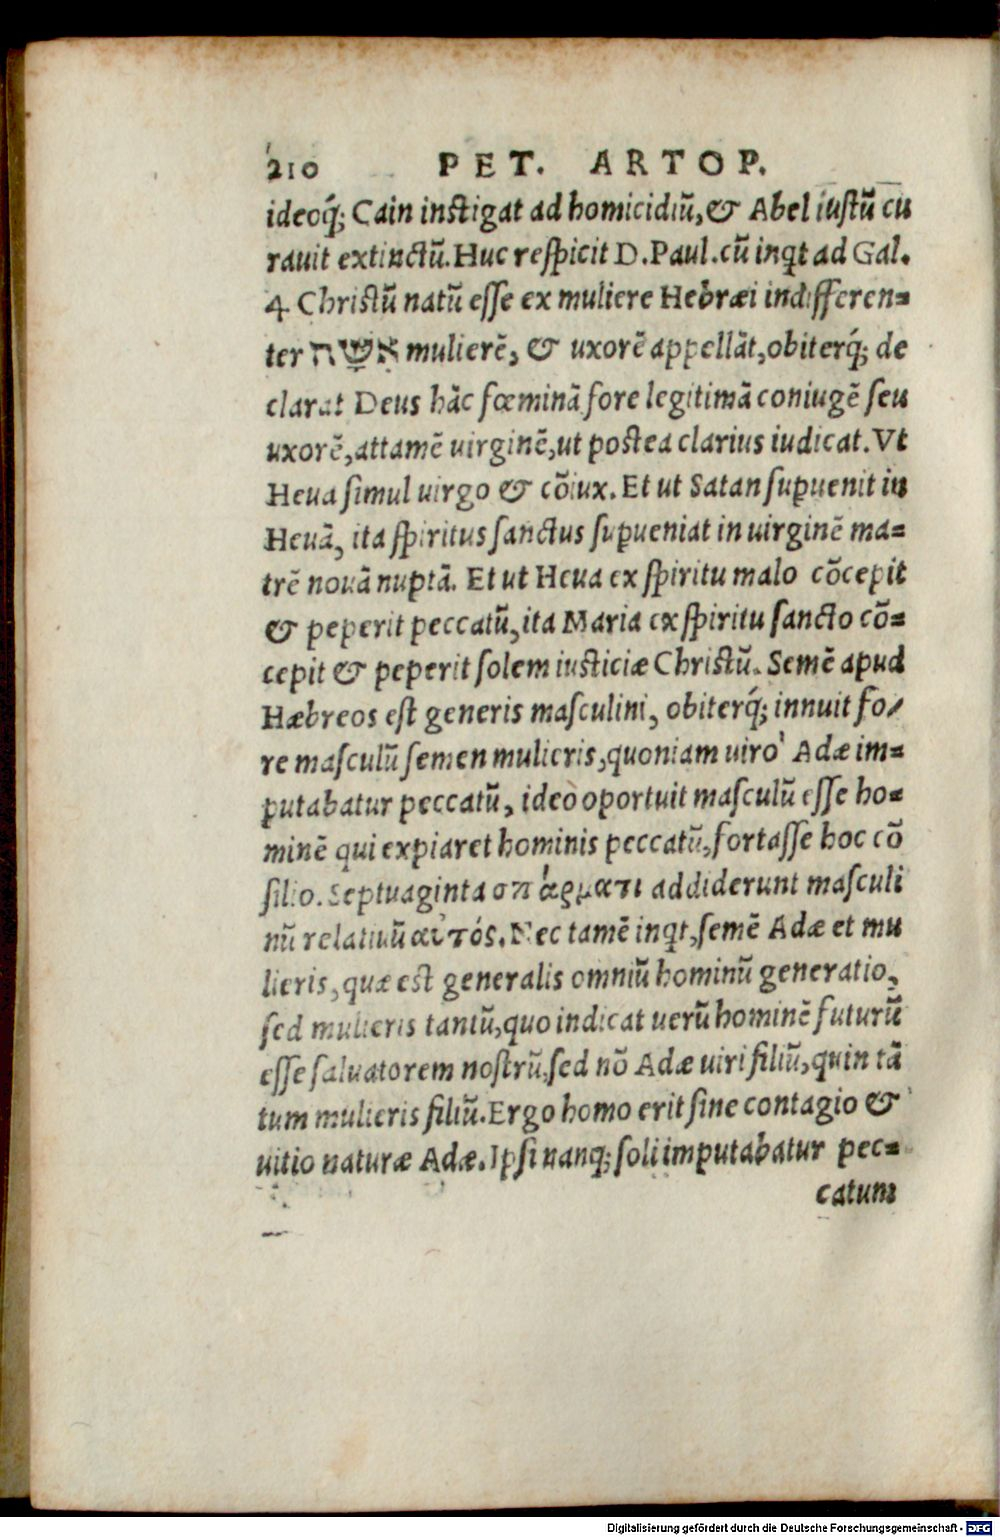 210 PET. ARTOP.
ideoq́; Cain instigat ad homicidiũ, & Abel iustũ cu
rauit extinctũ. Huc respicit D. Paul. cũ inqt ad Gal.
4. Christũ natũ esse ex muliere Hebræi indifferen=
ter אשָּׁה mulierẽ, & uxorẽ appellãt, obiterq́; de
clarat Deus hãc fœminã fore legitimã coniugẽ seu
uxorẽ, attamẽ uirginẽ, ut postea clarius iudicat. Vt
Heua simul uirgo & cõiux. Et ut Satan suꝑuenit in
Heuã, ita spiritus sanctus suꝑueniat in uirginẽ ma=
trẽ nouã nuptã. Et ut Heua ex spiritu malo cõcepit
& peperit peccatũ, ita Maria ex spiritu sancto cõ=
cepit & peperit solem iusticiæ Christũ. Semẽ apud
Hæbreos est generis masculini, obiterq́; innuit fo/
re masculũ semen mulieris, quoniam uiro Adæ im=
putabatur peccatũ, ideo oportuit masculũ esse ho=
minẽ qui expiaret hominis peccatũ, fortasse hoc cõ
silio. Septuaginta σπἀρματι addiderunt masculi
nũ relatiuũ αὐτός. Nec tamẽ inqt, semẽ Adæ et mu
lieris, quæ est generalis omniũ hominũ generatio,
sed mulieris tantũ, quo indicat uerũ hominẽ futurũ
esse saluatorem nostrũ, sed nõ Adæ uiri filiũ, quin tã
tum mulieris filiũ. Ergo homo erit sine contagio &
uitio naturæ Adæ. Ipsi nanq; soli imputabatur pec=
catum
Digitalisierung gefördert durch die Deutsche Forschungsgemeinschaft - DFG